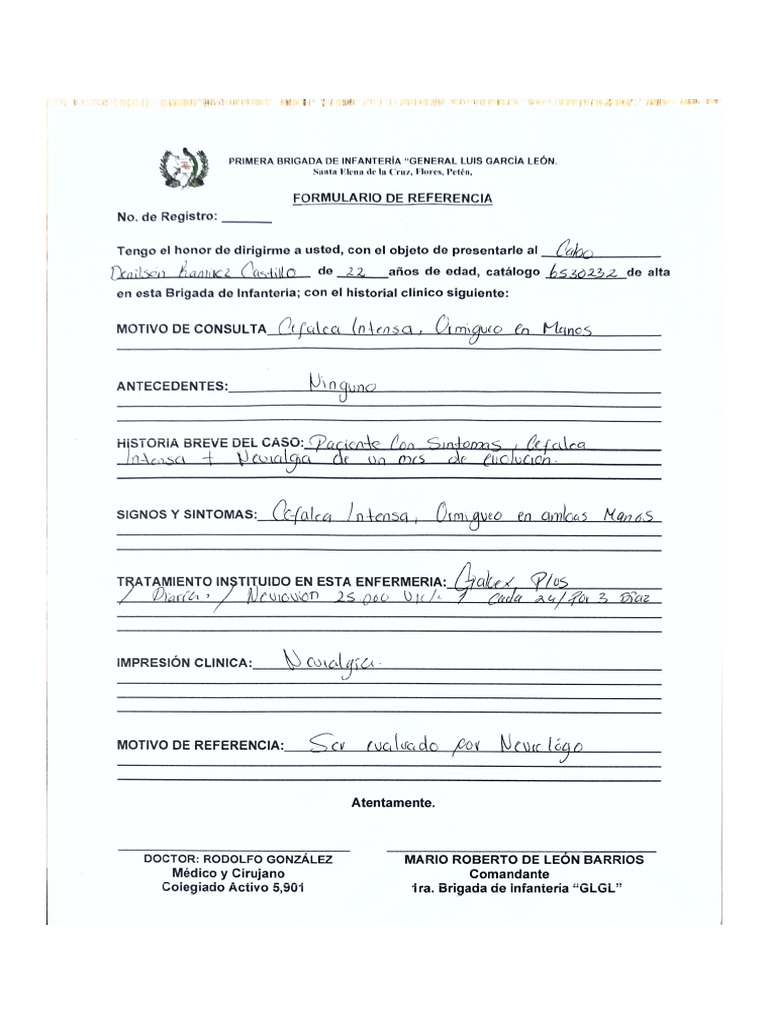 PRIMERA BRIGADA DE INFANTERÍA "GENERAL LUIS GARCÍA LEÓN.
Santa Elena de la Cruz, Flores, Petén,
FORMULARIO DE REFERENCIA
No. de Registro:
Tengo el honor de dirigirme a usted, con el objeto de presentarle al Cabo
Denilson Ramirez Castillo de 22 años de edad, catálogo 6530232 de alta
en esta Brigada de Infantería; con el historial clínico siguiente:
MOTIVO DE CONSULTA Cefalea Intensa, Ormigueo en Manos
ANTECEDENTES: Ninguno
HISTORIA BREVE DEL CASO: Paciente Con Sintomas, Cefalea
Intensa + Neuralgia de un mes de evolución.
SIGNOS Y SINTOMAS: Cefalea Intensa, Ormigueo en ambas Manos
TRATAMIENTO INSTITUIDO EN ESTA ENFERMERIA: Plos
Diaria, / 25.000 1 Cada 24/Por 3 Diaz
IMPRESIÓN CLINICA: Neuralgia.
MOTIVO DE REFERENCIA: Ser evaluado por Neurológo
Atentamente.
DOCTOR: RODOLFO GONZÁLEZ
Médico y Cirujano
Colegiado Activo 5,901
MARIO ROBERTO DE LEÓN BARRIOS
Comandante
1ra. Brigada de infantería "GLGL"